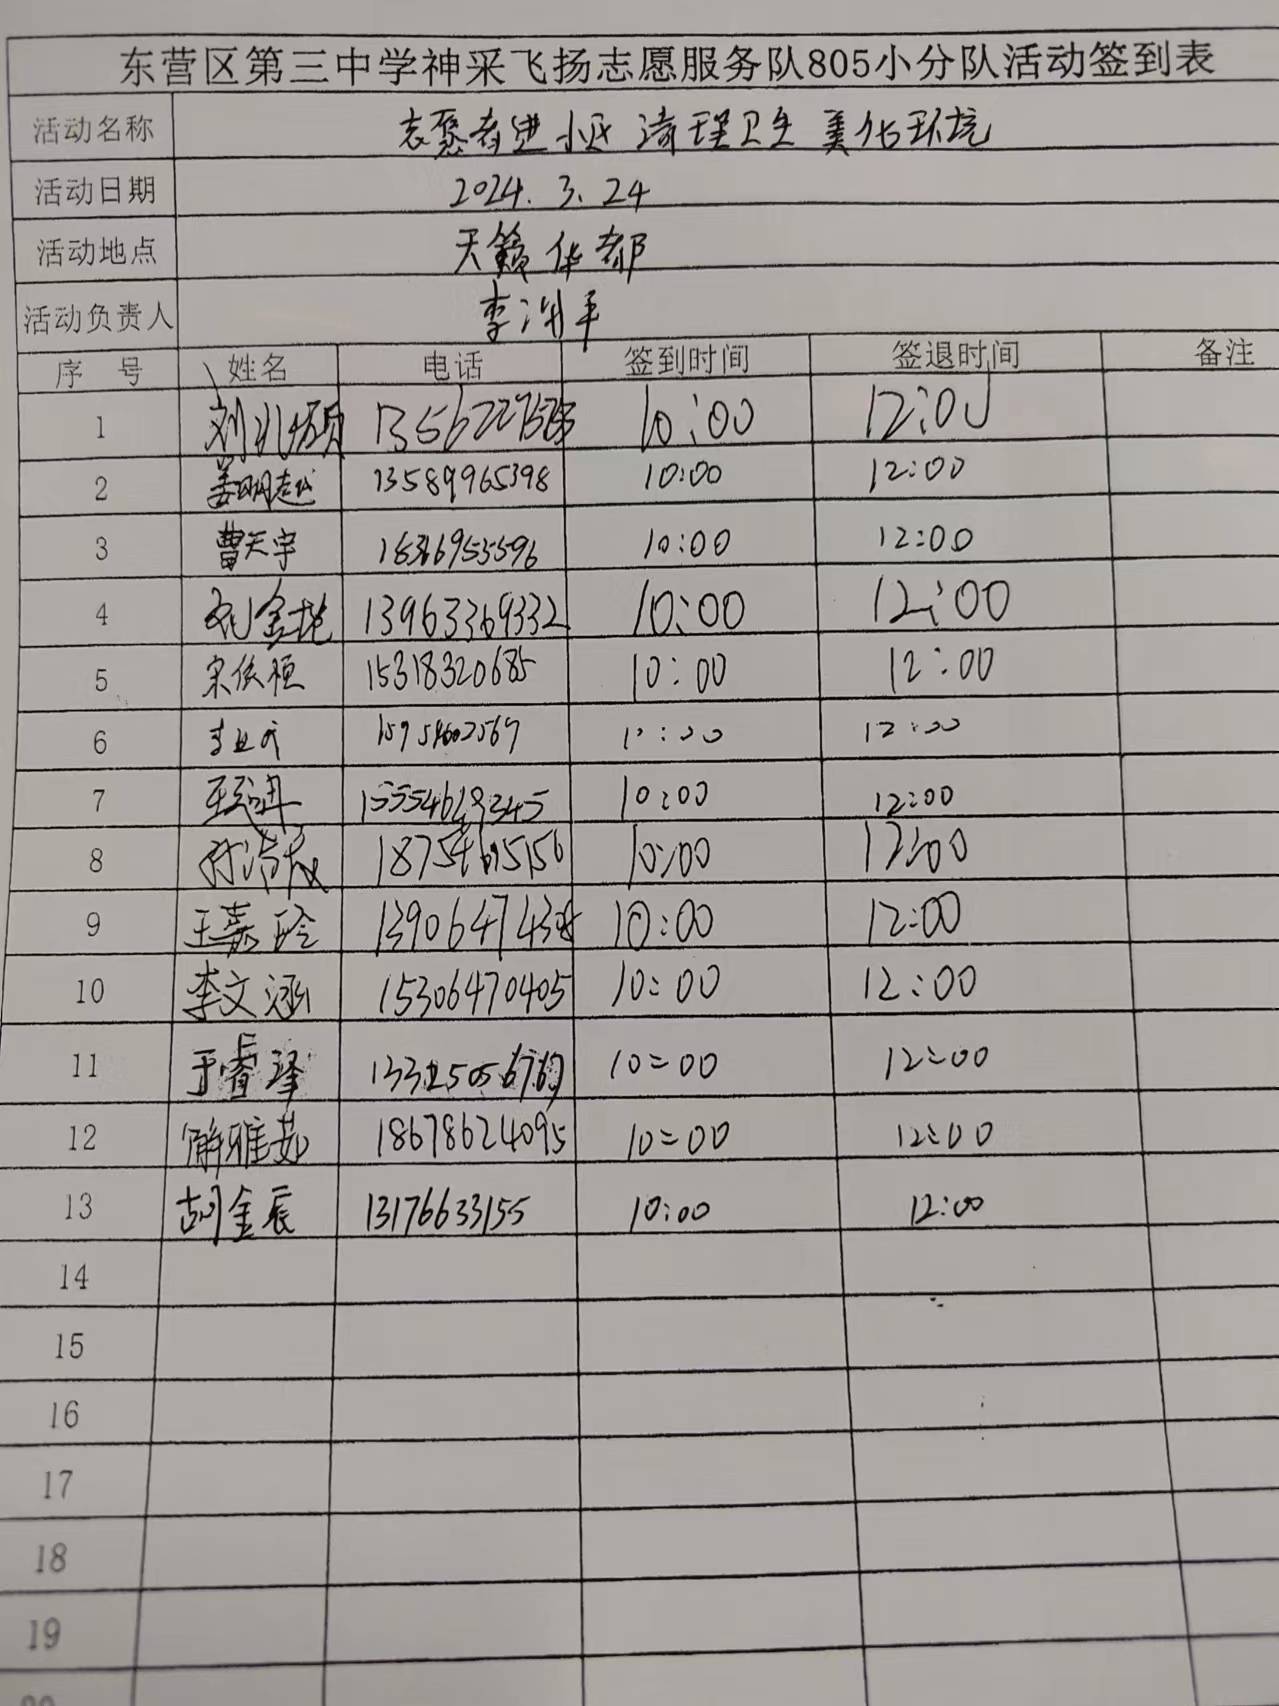 东营区第三中学神采飞扬志愿服务队805小分队活动签到表
活动名称 志愿者进小区 清理卫生 美化环境
活动日期 2024.3.24
活动地点 天籁华都
活动负责人 李
序 号 姓名 电话 签到时间 签退时间 备注
1 刘 10:00 12:00
2 姜明超 13589965398 10:00 12:00
3 曹天宇 10:00 12:00
4 金 13963369332 10:00 12:00
5 宋依恒 15318320685 10:00 12:00
6 10:00 12:00
7 10:00 12:00
8 10:00 12:00
9 王嘉玲 10:00 12:00
10 李文涵 15306470405 10:00 12:00
11 于睿泽 10:00 12:00
12 解雅茹 18678624095 10:00 12:00
13 胡金辰 13176633155 10:00 12:00
14
15
16
17
18
19